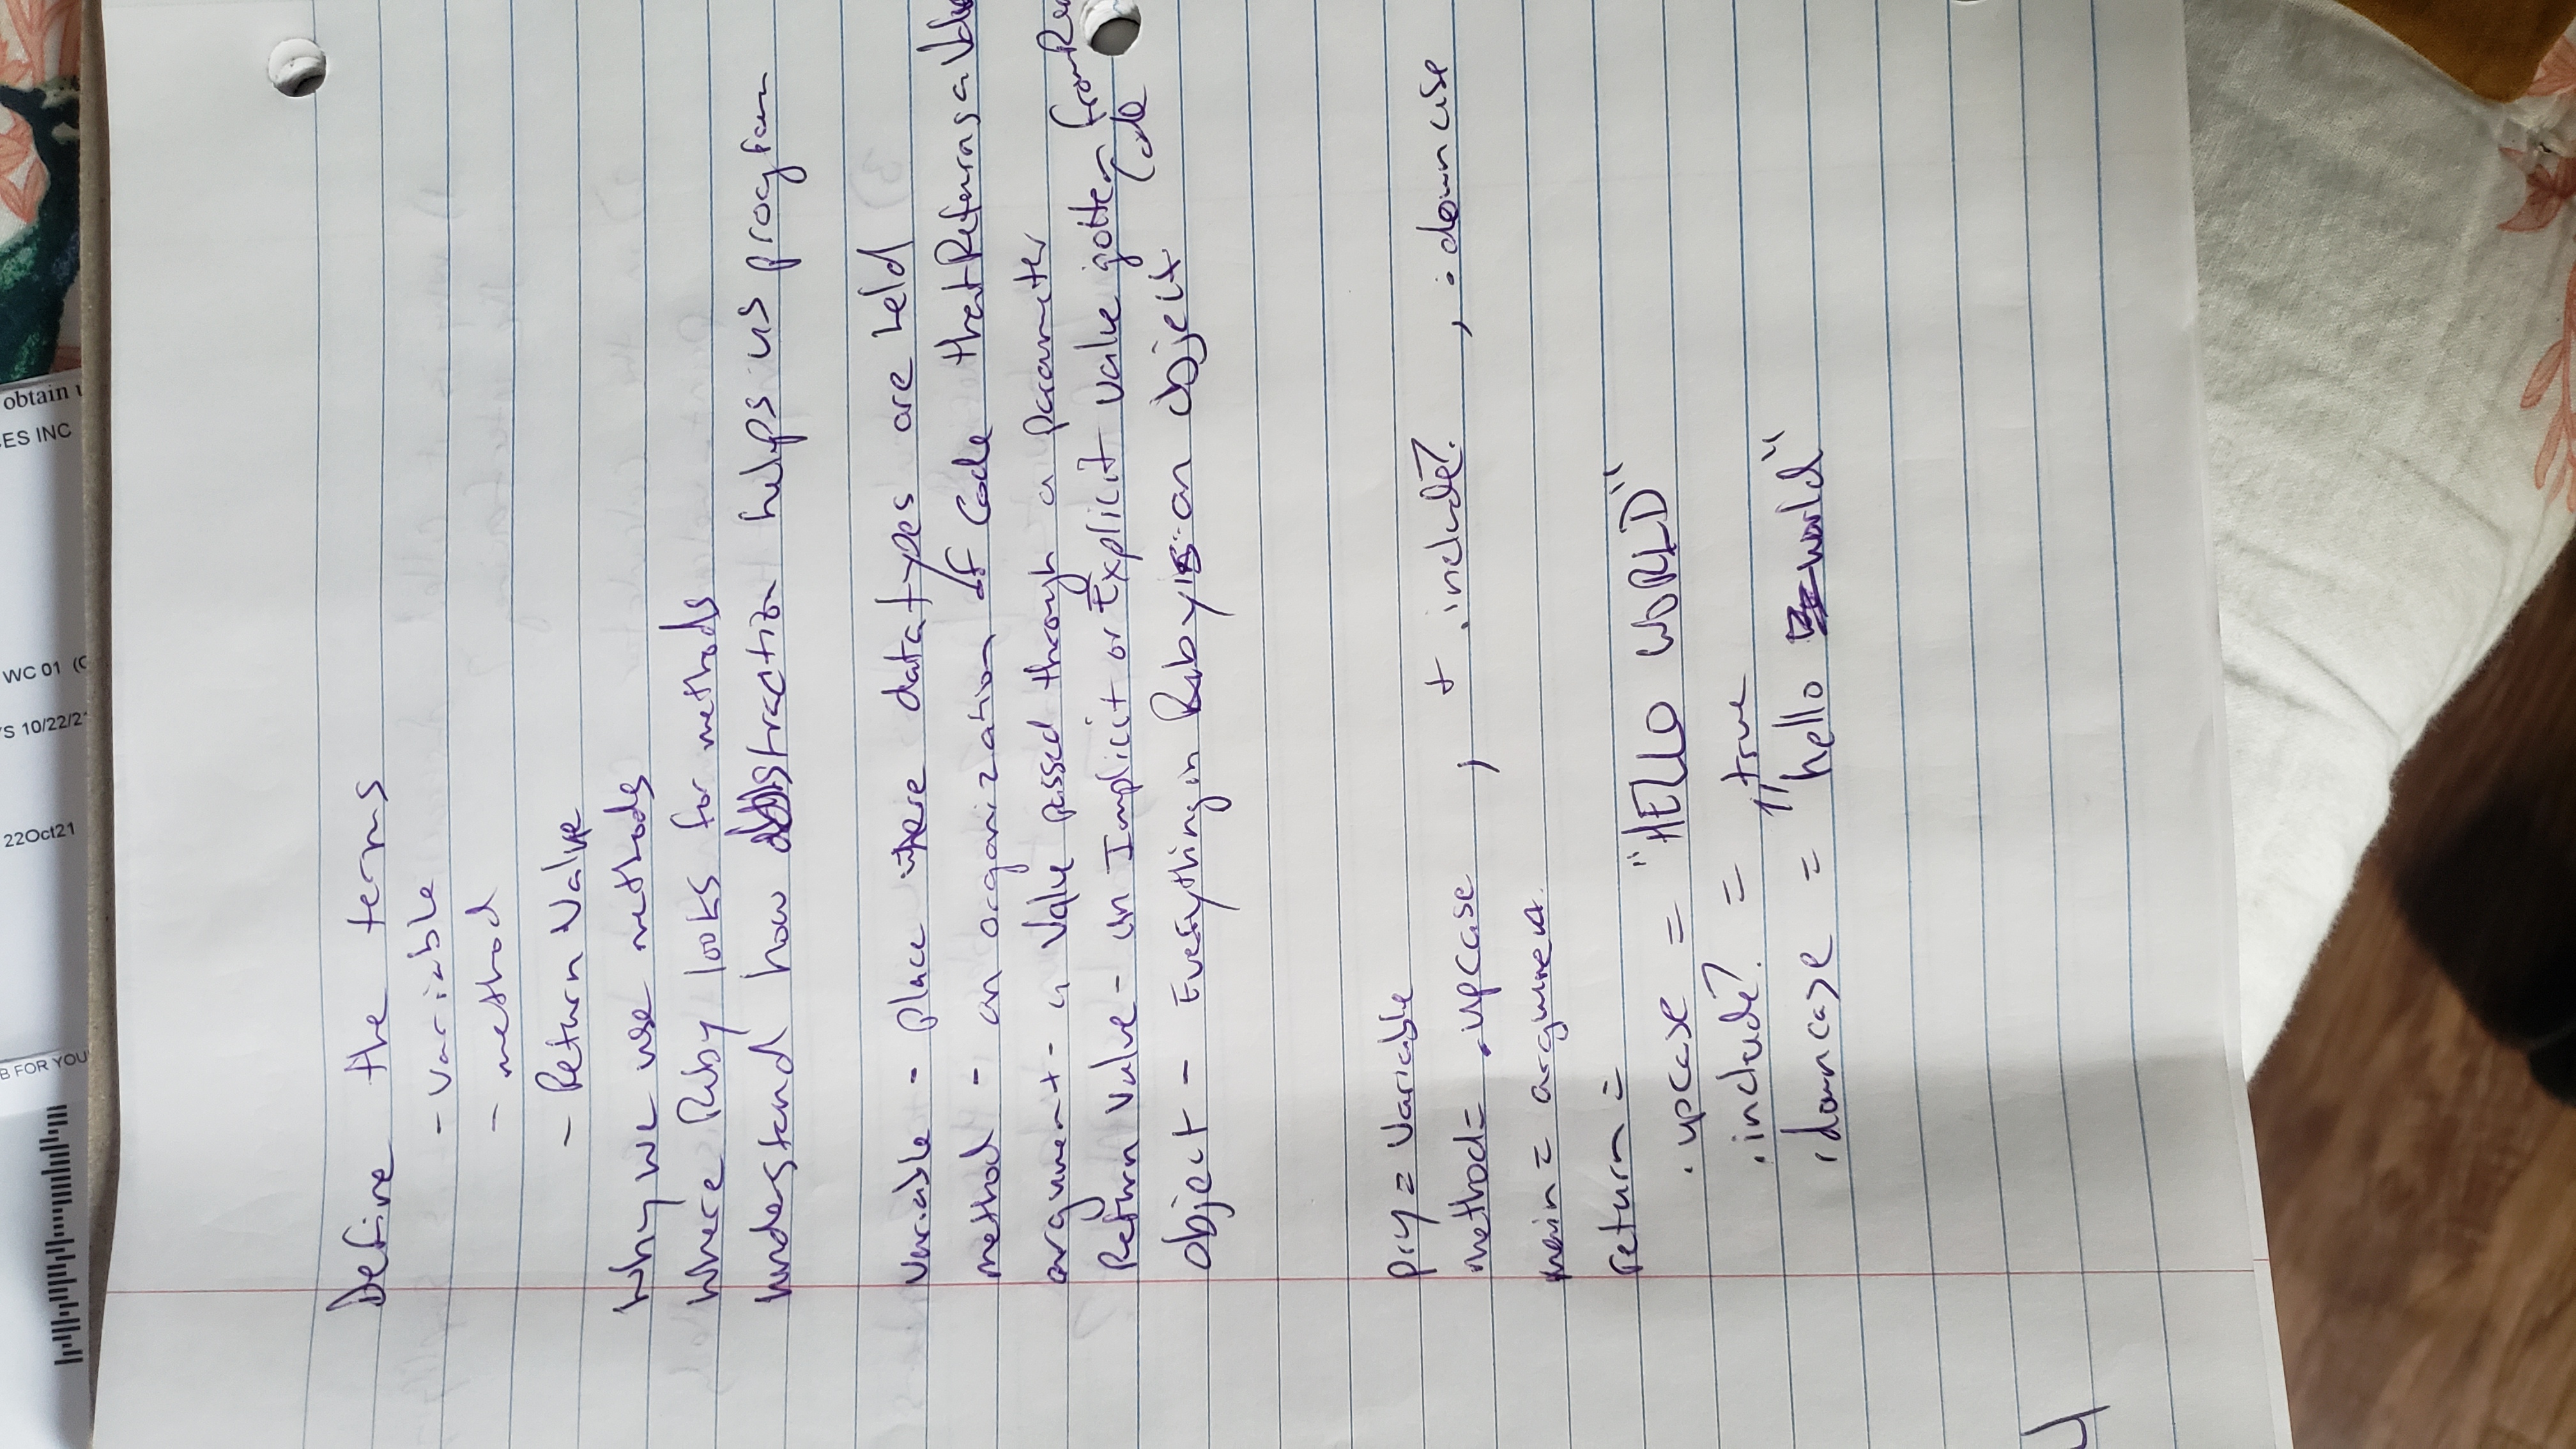 B FOR YOU
22Oct21
'S 10/22/2
WC 01 (C
ES INC
obtain
Define the terms
- variable
- method
- Return Value
Why we use methods
Where Ruby looks for methods
understand how abstraction helps us program
variable - place where data types are held
method - an organization of Code that Returns a Value
argument - a Value passed through a parameter
Return Value - an Implicit or Explicit value gotten from
Code
object - Everything in Ruby is an object
pry = Variable
method = .upcase , + .include? , .downcase
main = argument
return =
.upcase = "HELLO WORLD"
.include? = true
.downcase = "hello world"
4